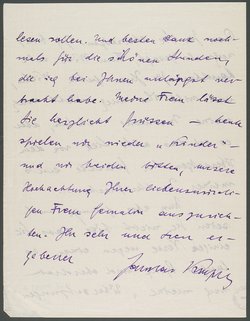 lesen sollen. Und besten Dank noch-
mals für die schönen Stunden,
die ich bei Ihnen unlängst ver-
bracht habe. Meine Frau lässt
Sie herzlichst grüssen – heute
spielen wir wieder
und wir beiden bitten, unsere
Hochachtung Ihrer liebenswürdi-
gen Frau Gemahlin auszurich-
ten. Ihr sehr und treu er-
gebener
Jaroslav